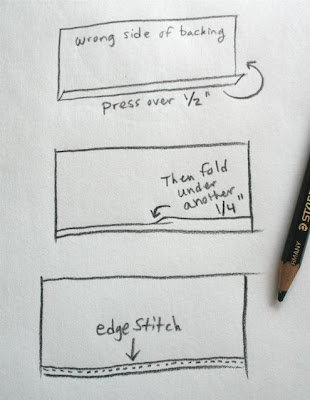 wrong side of backing
press over 1/2"
Then fold
under
another
1/4"
edge stitch
GERMANY